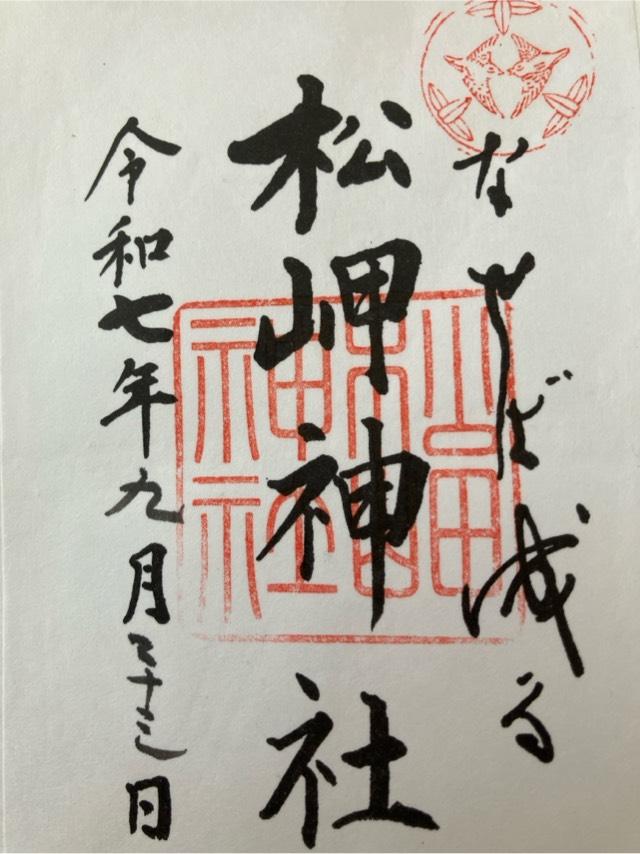 なせば成る
松岬神社
令和七年九月二十三日